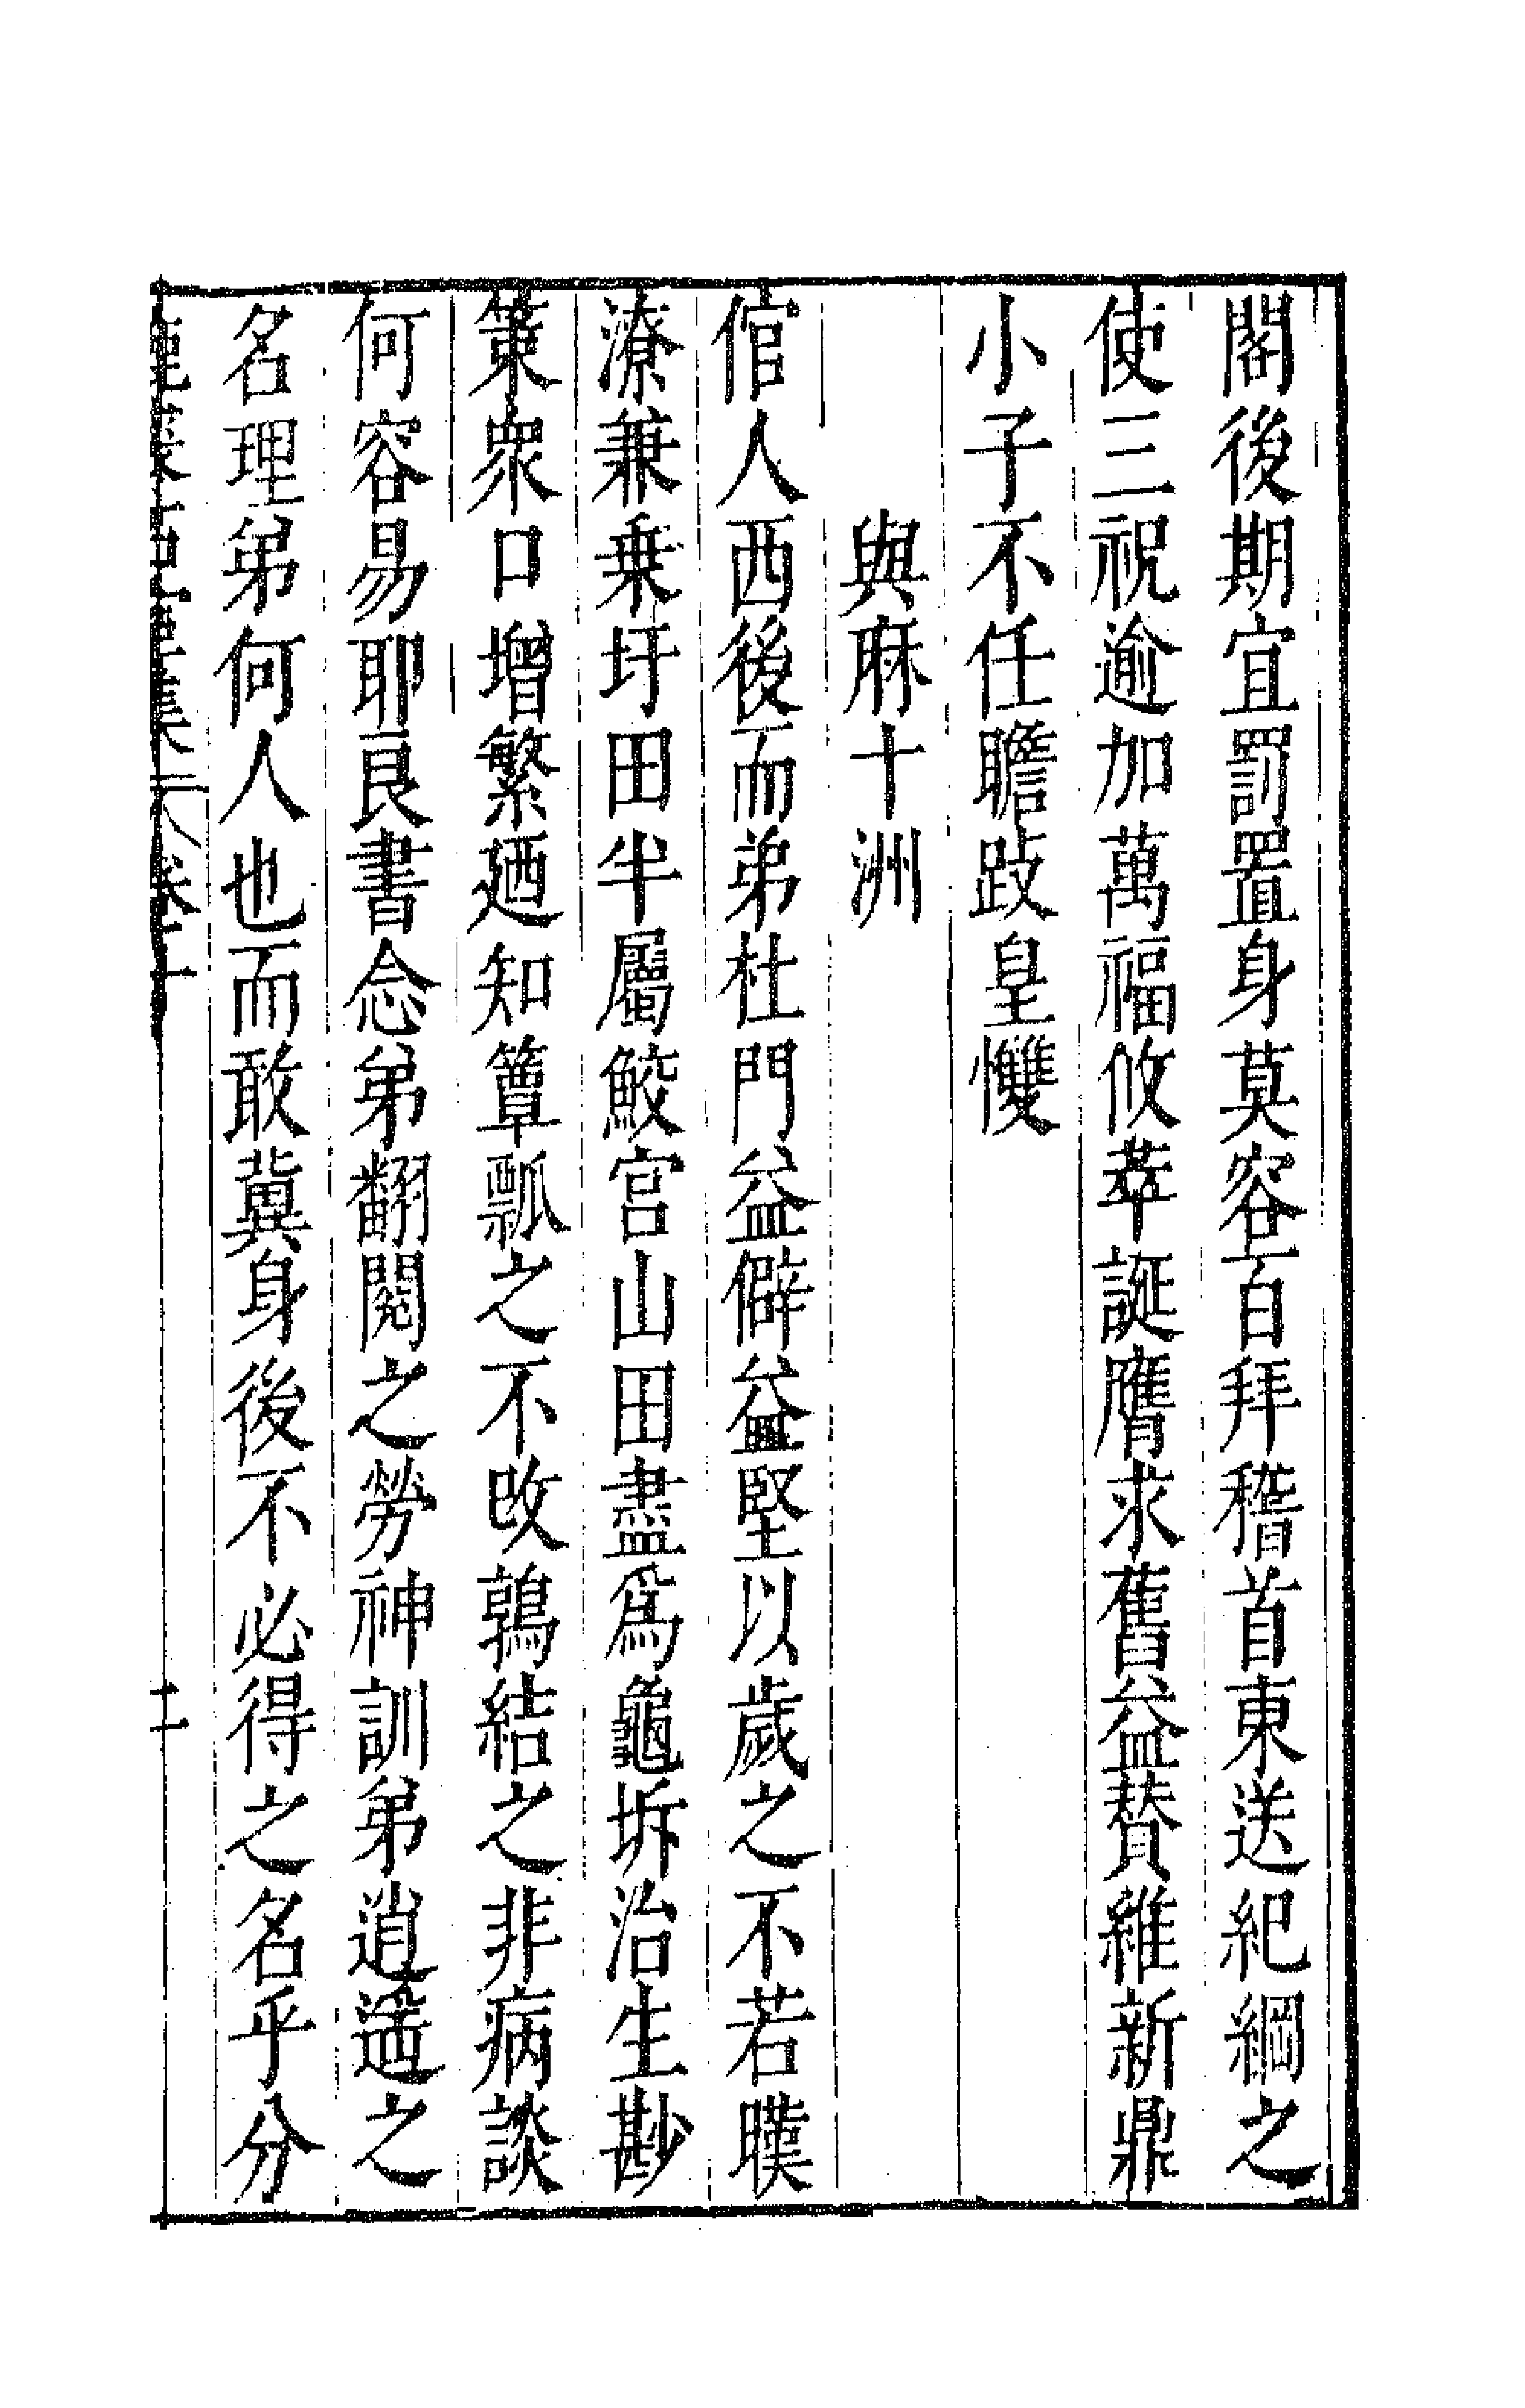 閣後期宜罰置身莫容百拜稽首東送紀綱之
使三祝逾加萬福攸萃誕膺求舊益贊維新鼎
小子不任瞻跂皇㦬
與麻十洲
倌人西後而弟杜門益僻益堅以歲之不若暵
潦兼乗圩田半屬鮫宮山田盡爲龜坼治生尠
策衆口增繁廼知簞瓢之不改鶉結之非病談
何容易耶良書念弟翻閱之勞神訓弟逍遥之
名理弟何人也而敢冀身後不必得之名乎分
卷十
二十